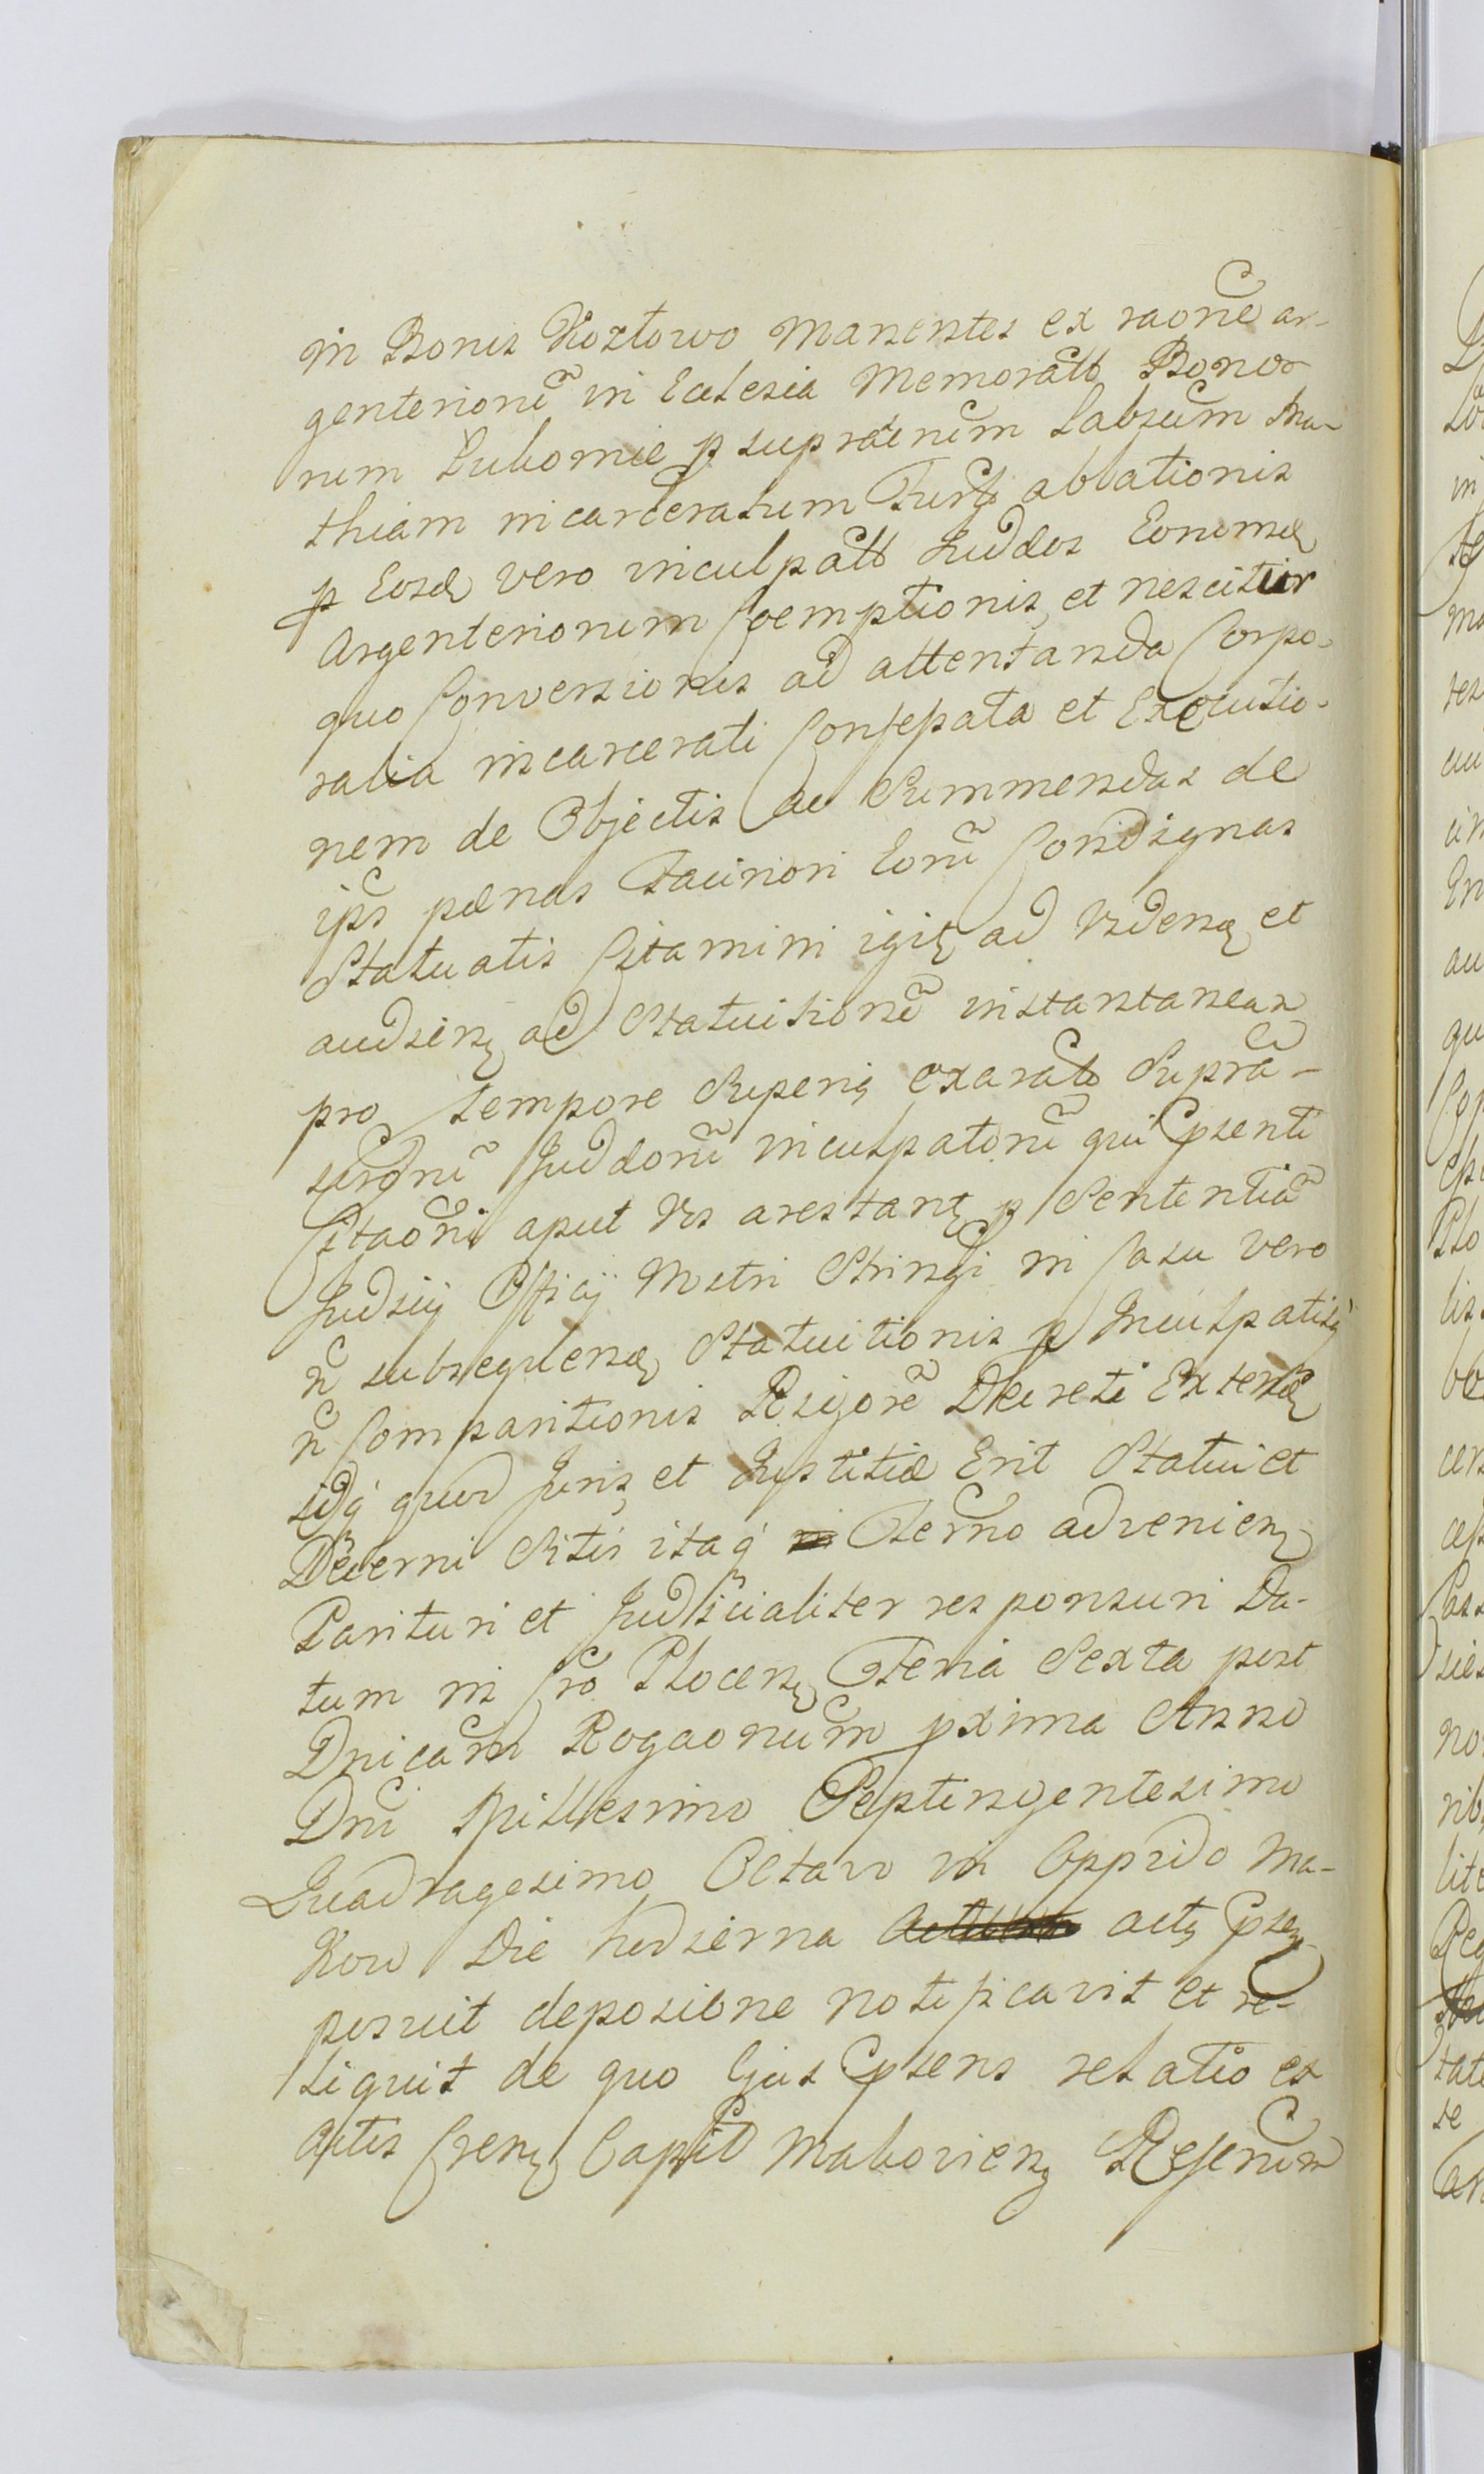 in Bonis Kozłowo Manentes ex raone ar-
genteriorũ in Eclesia Memoratt Bono-
rum Lubomie p supradtnum Labsum Ma-
thiam incarceratum Furti ablationis
p Eosd vero inculpatt Judeos Eorumd
Argenteriorum Coemptionis et nescitur
quo Conversionis ad attentanda Corpo-
ralia incarcerati Confessata et Executio-
nem de Objectis ac Summendas de
ips pænas Facinori Eorũ Condignas
Statuatis Citamini igit ad Videnđ et
audien ad Statuitionẽ instantanean
pro tempore Superių exarato Supra-
scrõrũ Judeorũ inculpatorũ qui Psenti
Citaõni aput Vos arestant p Sententiã
Judicij Officij Nostri Stringi in Casu vero
ñ subsequend Statuitionis p Inculpatisq
ñ Comparitionis Rigorẽ Decreti Extend
idq quod Juris et Justitiæ Erit Statui et
Decerni Sitis itaq Termo advenien
Parituri et Judicialiter responsuri Da-
tum in Cro Plocen Feria Sexta post
Dnicam Rogaonum pxima Anno
Dni Millesimo Septingentesimo
Quadragesimo Octavo in Oppido Ma-
kow Die hodierna act Psen
posuit deposione notificavit et re-
liquit de quo Ejus Psens relatio ex
Actis Cren Capit Makovien Rescrum